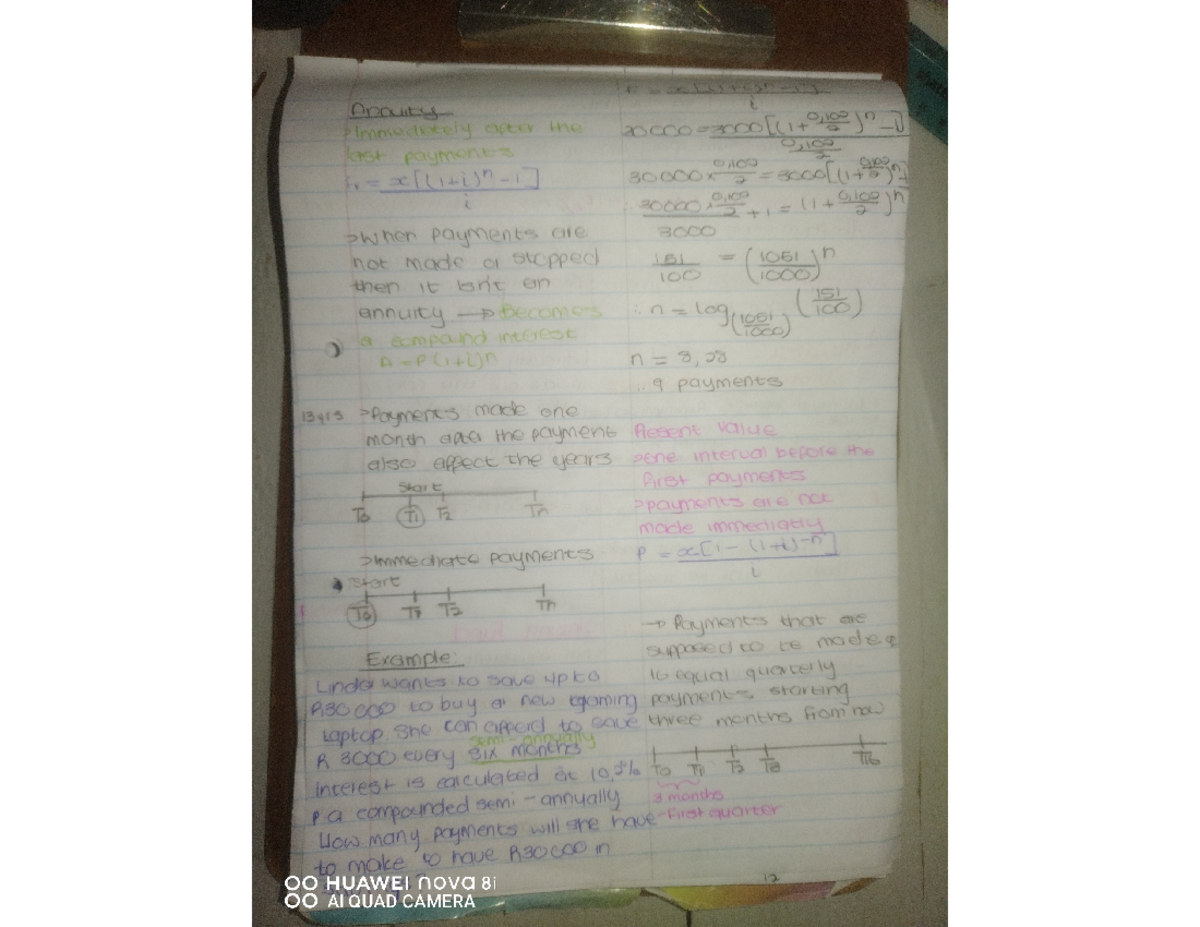 Annuity
>Immediately after the
last payments
Fv = x[(1+i)ⁿ - 1]
i
>When payments are
not made or stopped
then it isn't an
annuity → Becomes
a compound interest
A = P(1+i)ⁿ
>Payments made one
month after the payment
also affect the years
Start
T0 T1 T2 Tn
>Immediate payments
Start
T0 T1 T2 Tn
Example:
Linda wants to save up to
R30 000 to buy a new gaming
laptop. She can afford to save
semi-annually
R 3000 every six months
interest is calculated at 10,2%
p.a compounded semi-annually
How many payments will she have
to make to have R30 000 in
F = x[(1+i)ⁿ - 1]
i
30000 = 3000[(1+0,102/2)ⁿ - 1]
0,102/2
30000 × 0,102/2 = 3000[(1+0,102/2)ⁿ - 1]
30000 . 0,102/2 + 1 = (1+0,102/2)ⁿ
3000
151/100 = (1051/1000)ⁿ
∴ n = log(1051/1000) (151/100)
n = 8,28
∴ 9 payments
Present Value
>One interval before the
first payments
>payments are not
made immediatly
P = x[1 - (1+i)⁻ⁿ]
i
→ Payments that are
supposed to be made
16 equal quarterly
payments starting
three months from now
T0 T1 T2 T3 T16
3 months
-First quarter
12
HUAWEI nova 8i
AI QUAD CAMERA